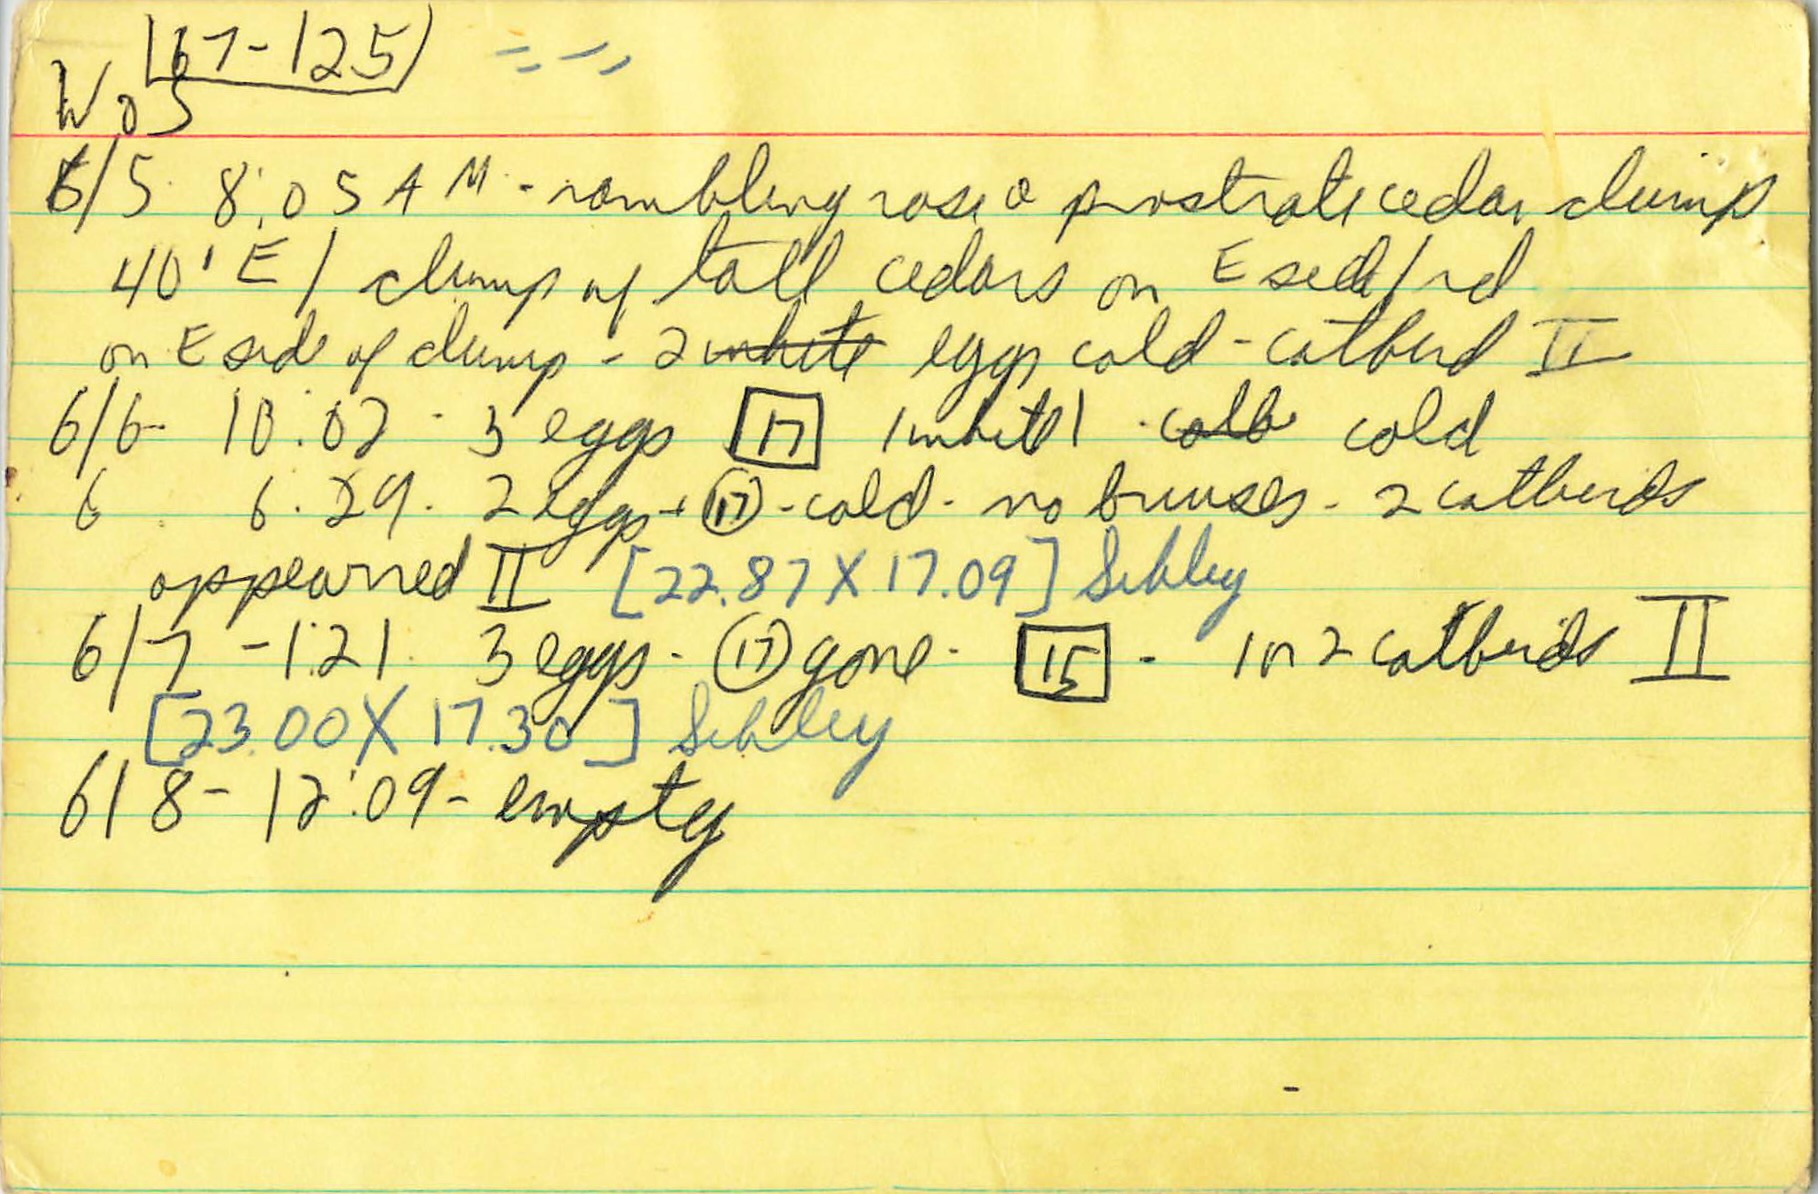 67-125
WoS
6/5 8:05 AM - rambling rose & prostrate cedar clump
40' E / clump of tall cedars on E side / rd
on E side of clump - 2 white eggs cold - catbird II
6/6 - 10:02 - 3 eggs 17 1 white 1 cold
6 6:29. 2 eggs + 17 - cold - no bruises - 2 catbirds
appearred II [22.87 X 17.09] Sibley
6/7 - 1:21. 3 eggs - 17 gone - 15 - 1 or 2 catbirds II
[23.00 X 17.30] Sibley
6/8 - 12:09 - empty